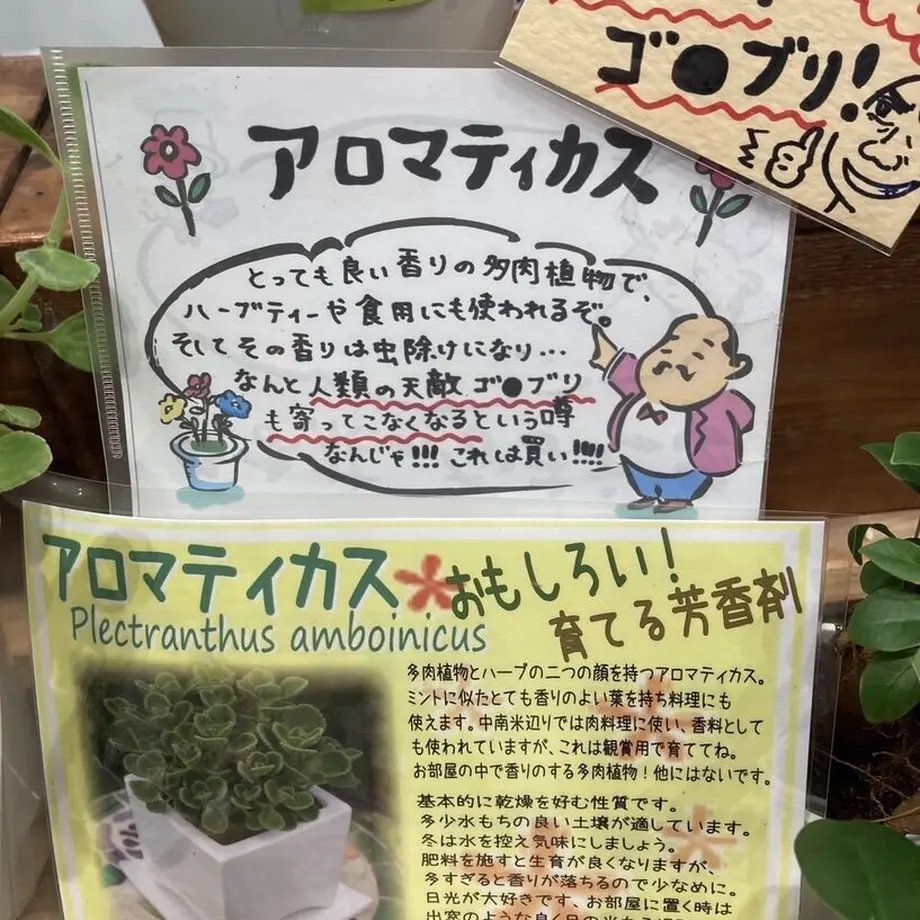 ゴ●ブリ!
アロマティカス
とっても良い香りの多肉植物で、
ハーブティーや食用にも使われるぞ。
そしてその香りは虫除けになり…
なんと人類の天敵ゴ●ブリ
も寄ってこなくなるという噂
なんじゃ!!! これは買い!!!!
アロマティカス
おもしろい!
Plectranthus amboinicus
育てる芳香剤
多肉植物とハーブの二つの顔を持つアロマティカス。
ミントに似たとても香りのよい葉を持ち料理にも
使えます。中南米辺りでは肉料理に使い、香料として
も使われていますが、これは観賞用で育ててね。
お部屋の中で香りのする多肉植物!他にはないです。
基本的に乾燥を好む性質です。
多少水もちの良い土壌が適しています。
冬は水を控え気味にしましょう。
肥料を施すと生育が良くなりますが、
多すぎると香りが落ちるので少なめに。
日光が大好きです、お部屋に置く時は